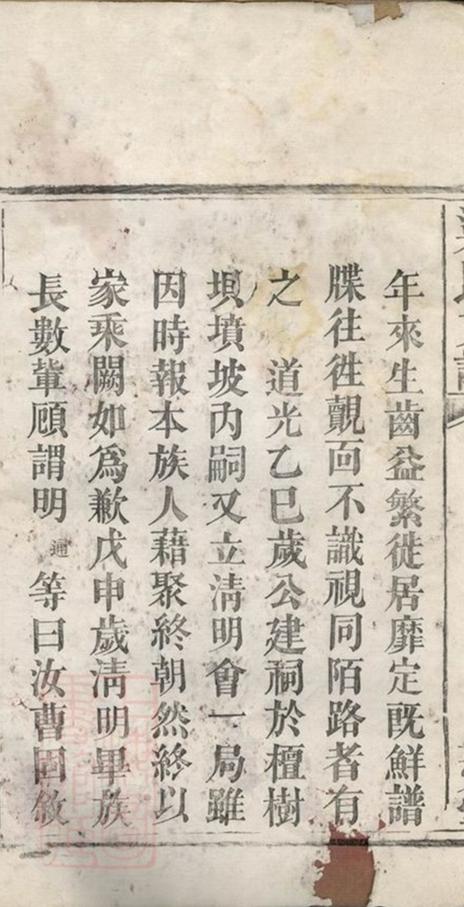 年來生齒益繁徙居靡定既鮮譜
牒往徃覿面不識視同陌路者有
之　道光乙巳歲公建祠於檀樹
垻墳坡內嗣又立清明會一局雖
因時報本族人藉聚終朝然終以
家乘闕如為歉戊申歲清明畢族
長數輩顧謂明通等曰汝曹固敘